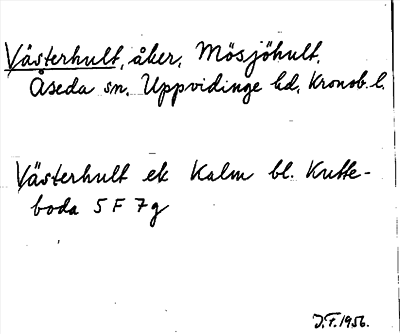 Västerhult, åker, Mösjöhult,
Åseda sn. Uppvidinge hd, Kronob. l.
Västerhult ek Kalm bl. Kutte-
boda 5 F 7 g
J.F. 1956.